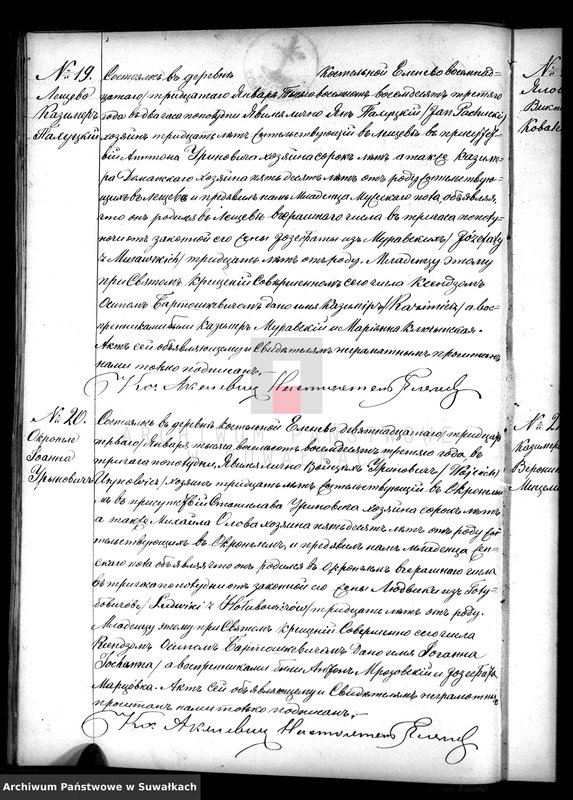 № 19.
Лещево
Казимеръ
Палуцкий
Состоялось въ деревнѣ костельной Еленево восемнад=
цатаго/тридцатаго Января тысяча восемьсотъ восемдесятъ третяго
года въ два часа пополудни Явился лично Янъ Палуцкій/Jan Pałucki/
хозяинъ тридцать лѣтъ жительствующій въ Лещевѣ въ присутст=
вій Антона Уриновича хозяина сорокъ лѣтъ а также Казиме=
ра хозяина пятьдесятъ лѣтъ отъ роду жительствую=
щихъ въ Лещевѣ и предявилъ намъ младенца Мужескаго пола объявляя,
что онъ родился въ Лещевѣ вчерашняго числа въ три часа пополу=
ночи отъ законной его жены Іозефаты изъ Муравскихъ/Józefaty
z Murawskich/ тридцать лѣтъ отъ роду. Младенцу этому
при Святомъ крещеніи Совершенномъ сего числа Ксендзомъ
Осипомъ Бартошкевичемъ дано имя Казимиръ/Kazimierz/ а вос=
пріемниками были Казимеръ Муравскій и Маріянна
Актъ сей объявляющему и Свидѣтелямъ неграмотнымъ прочитанъ
нами только подписанъ.
Кс. Акелевиц Настоятель Еленев
№ 20.
Окроньле
Іоанна
Урыновичъ
Состоялось въ деревнѣ костельной Еленево девятнадцатаго/тридцать
перваго/Января тысяча восемьсотъ восемдесятъ третяго года, въ
три часа пополудни, Явился лично Войцѣхъ Уриновичъ/Wojciech
Urynowicz/ хозяинъ тридцать лѣтъ жительствующій въ Окронь=
лѣ въ присутствій Станислава Уриновича хозяина сорокъ лѣтъ
а также Михайла хозяина пятьдесятъ лѣтъ отъ роду жи=
тельствующихъ въ Окроньлемъ, и предявилъ намъ младенца жен=
скаго пола объявляя что онъ родился въ Окроньлемъ вчерашняго числа
въ три часа пополудни отъ законной его жены Людвики изъ Голу=
бовичовъ/Ludwiki z Hołubowiczów/ тридцать лѣтъ отъ роду.
Младенцу этому при Святомъ крещеніи Совершенно сего числа
Ксендзомъ Осипомъ Бартошкевичемъ дано имя Іоганна
/Johanna/ а воспріемниками были Антонъ Мрозовскій и Іозефата
Марцовка. Актъ сей объявляющему и Свидѣтелямъ неграмотнымъ
прочитанъ нами только подписанъ.
Кс. Акелевиц Настоятель Еленев
№ 2
Казимира
Вероник
ARCHIWUM PAŃSTWOWE
Archiwum Państwowe w Suwałkach